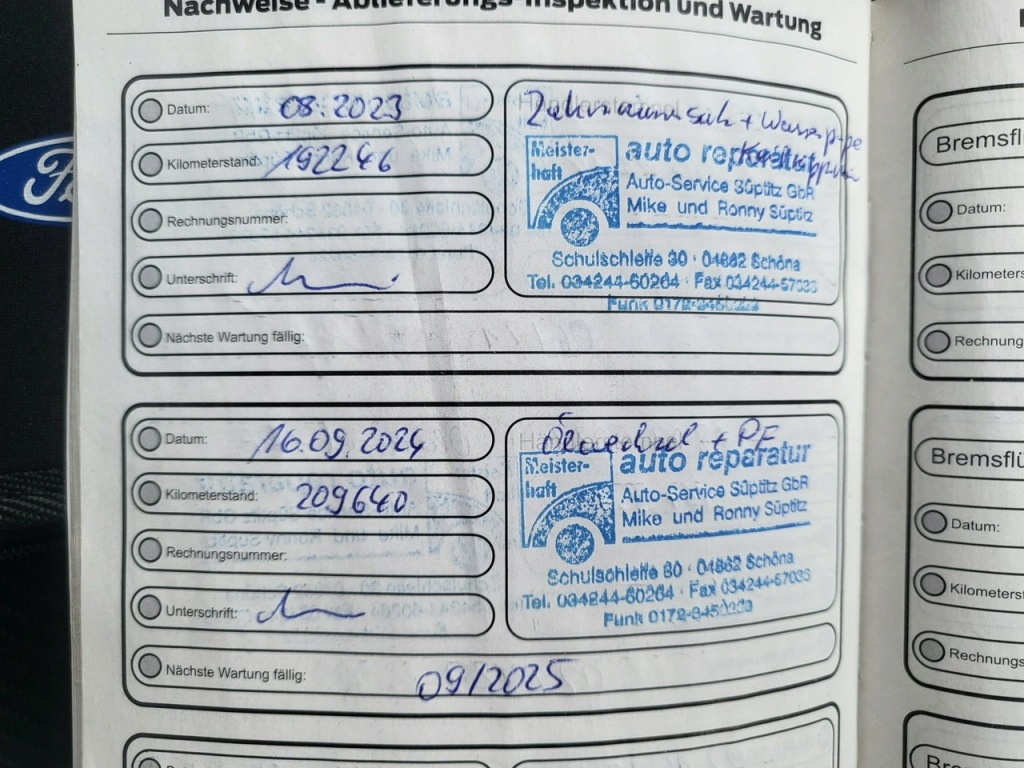 Nachweise - Ablieferungs-Inspektion und Wartung
Datum: 08.2023
Kilometerstand: 192246
Rechnungsnummer:
Unterschrift:
Nächste Wartung fällig:
Händlerstempel
Meister-
haft
auto reparatur
Auto-Service Süptitz GbR
Mike und Ronny Süptitz
Schulschleife 30 · 04862 Schöna
Tel. 034244-60264 · Fax 034244-57033
Funk
Datum: 16.09.2024
Kilometerstand: 209640
Rechnungsnummer:
Unterschrift:
Nächste Wartung fällig: 09/2025
Händlerstempel
Ölwechsel + PF
Meister-
haft
auto reparatur
Auto-Service Süptitz GbR
Mike und Ronny Süptitz
Schulschleife 30 · 04862 Schöna
Tel. 034244-60264 · Fax 034244-57033
Funk
Bremsflü
Datum:
Kilometers
Rechnung
Bremsflü
Datum:
Kilometerst
Rechnungs